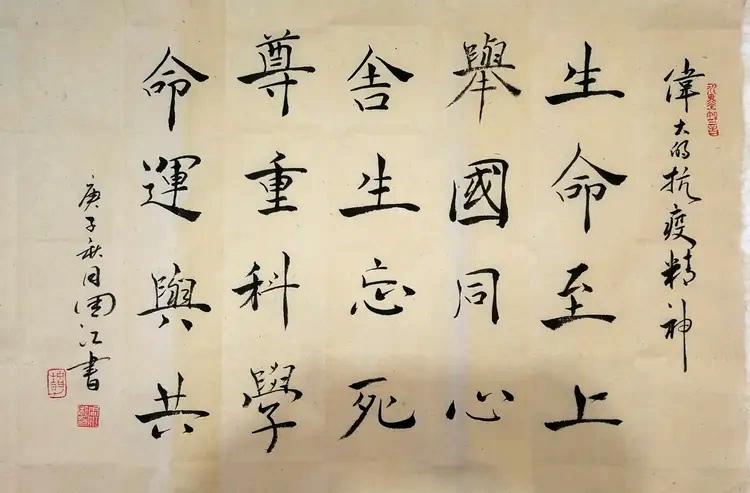 偉大的抗疫精神
生命至上
舉國同心
舍生忘死
尊重科學
命運與共
庚子秋月国江書